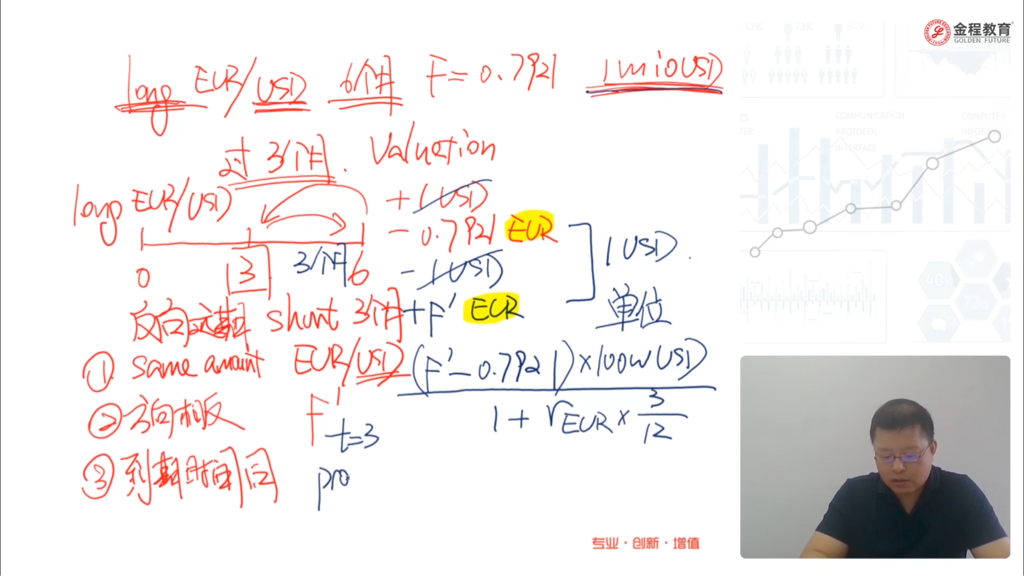 金程教育
GOLDEN FUTURE
long EUR/USD 6个月 F=0.7921 1mioUSD
过3个月. Valuation
long EUR/USD
+1USD
-0.7921 EUR
0 3 3个月 6
-1USD
1USD.
单位
反向远期 short 3个月
+F' EUR
① same amount EUR/USD
(F'-0.7921)×100w USD
1+rEUR×3/12
② 方向相反
F' t=3
③ 到期时间同
pro
专业·创新·增值